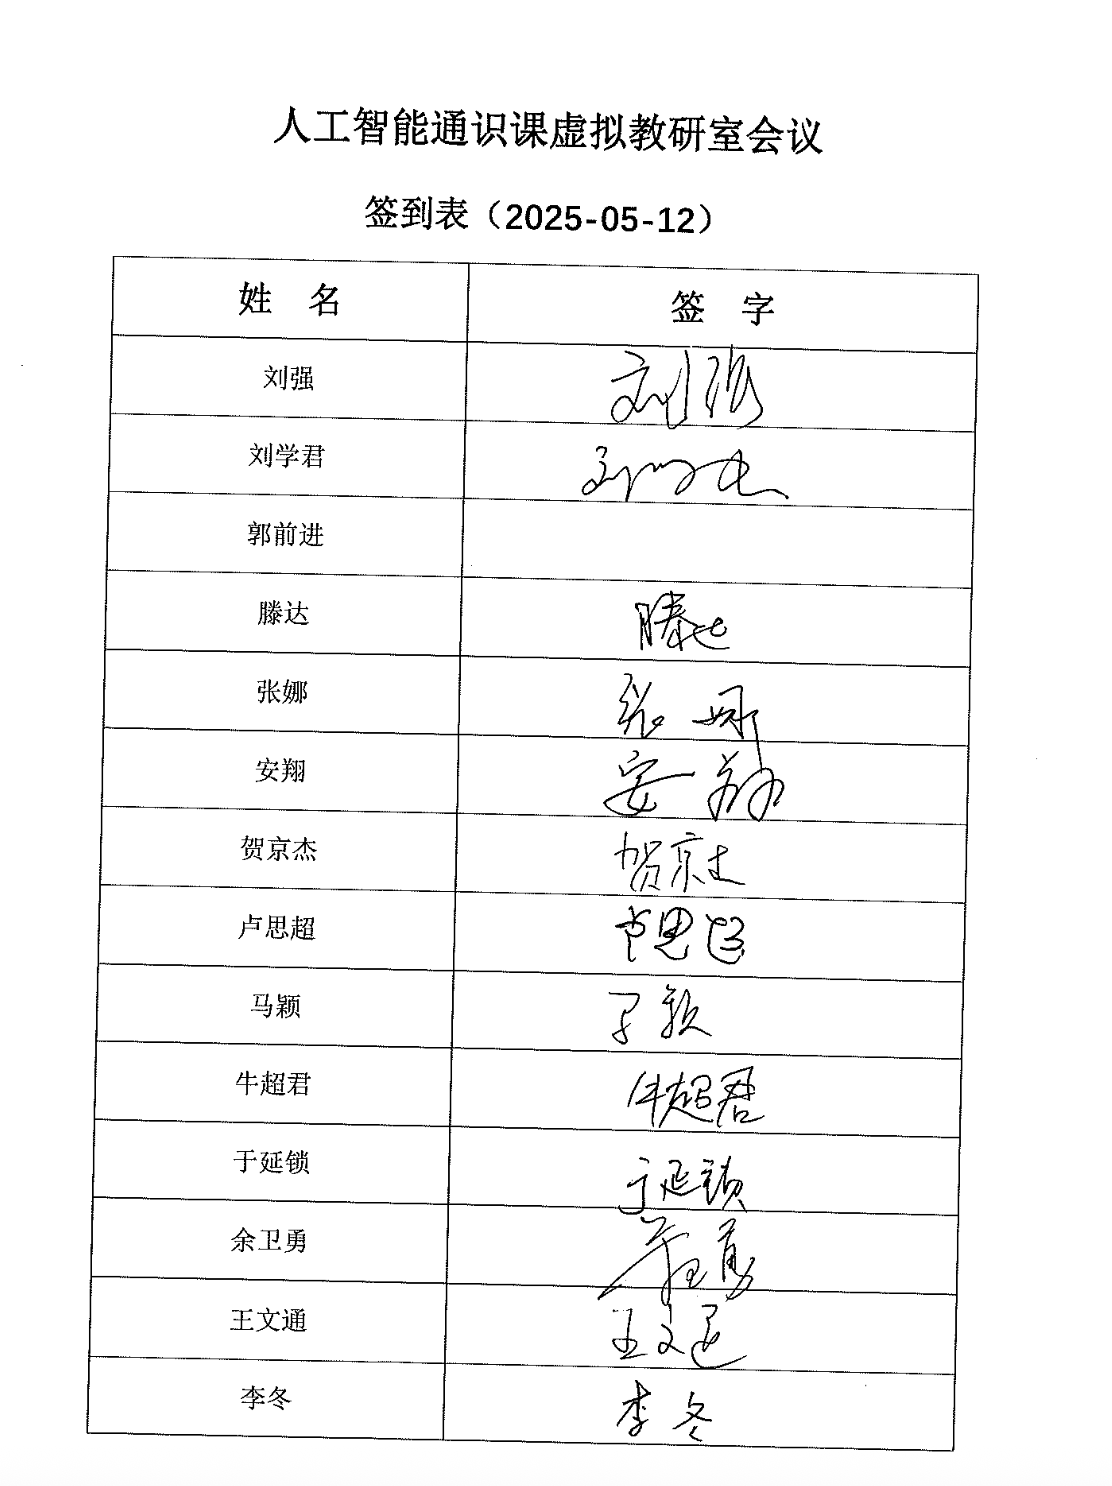 人工智能通识课虚拟教研室会议
签到表（2025-05-12）
姓 名 签 字
刘强 刘强
刘学君 刘学君
郭前进
滕达 滕达
张娜 张娜
安翔 安翔
贺京杰 贺京杰
卢思超 卢思超
马颖 马颖
牛超君 牛超君
于延锁 于延锁
余卫勇 余卫勇
王文通 王文通
李冬 李冬